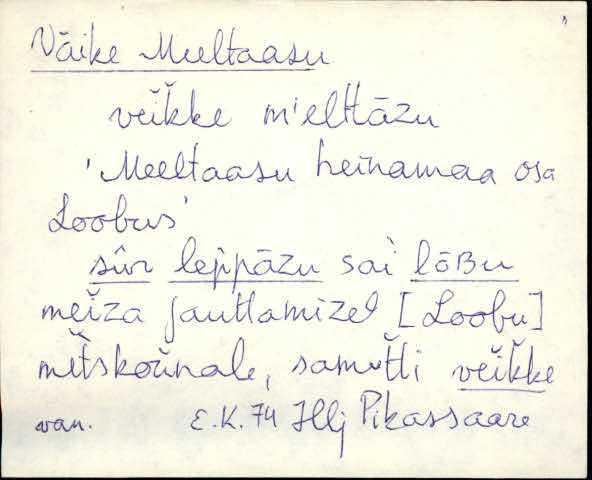 Väike Meeltaasu
veĭkke mi̯elttāzu
'Meeltaasu heinamaa osa
Loobus'
sūr leppāzu sai lōʙu
meĭza jauttamizel [Loobu]
mĕtskoŭnale, samŭtti veĭkke
van. E.K. 74 Hlj Pikassaare